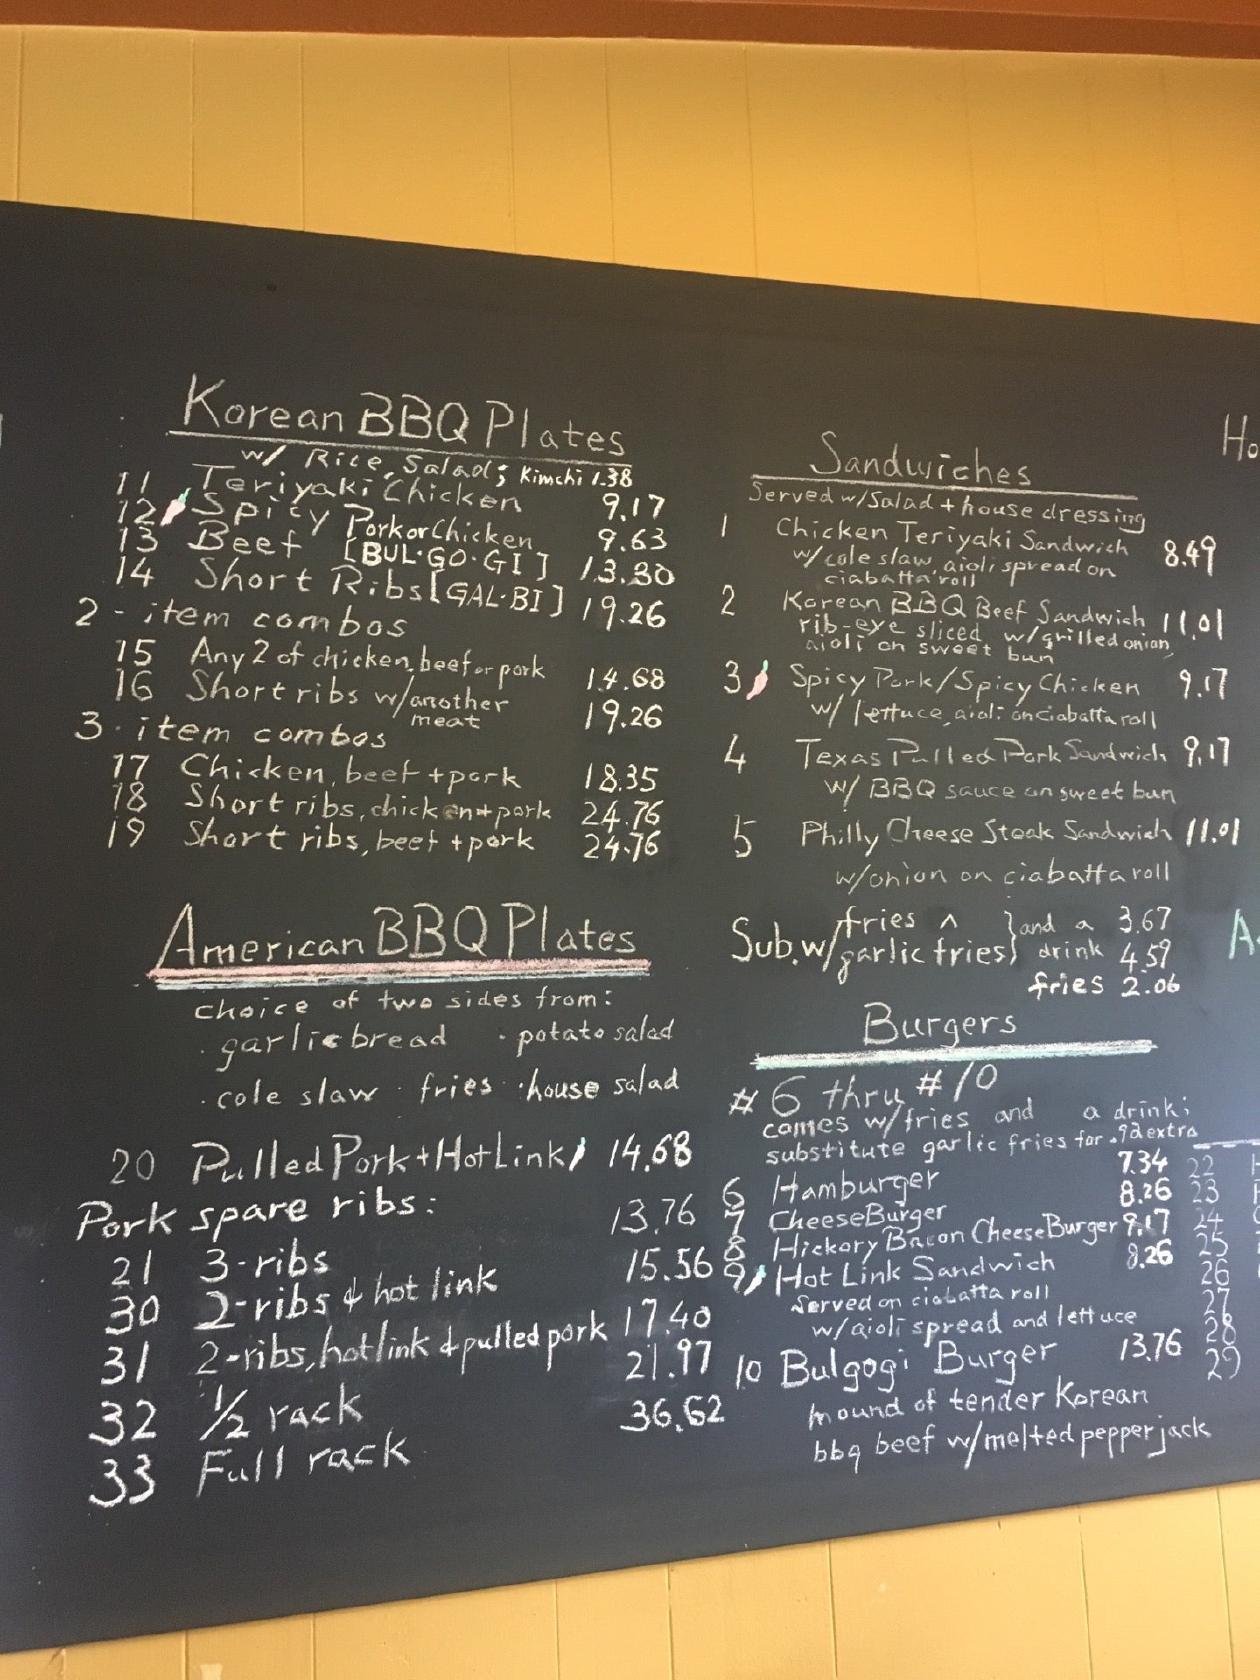 Korean BBQ Plates
w/ Rice, Salad; Kimchi 1.38
11 Teriyaki Chicken 9.17
12 Spicy Pork or Chicken 9.63
13 Beef [BUL·GO·GI] 13.30
14 Short Ribs [GAL·BI] 19.26
2-item combos
15 Any 2 of chicken, beef or pork 14.68
16 Short ribs w/another meat 19.26
3-item combos
17 Chicken, beef + pork 18.35
18 Short ribs, chicken + pork 24.76
19 Short ribs, beef + pork 24.76
American BBQ Plates
choice of two sides from:
· garlic bread · potato salad
· cole slaw · fries · house salad
20 Pulled Pork + Hot Link 14.68
Pork spare ribs:
21 3-ribs 13.76
30 2-ribs & hot link 15.56
31 2-ribs, hot link & pulled pork 17.40
32 1/2 rack 21.97
33 Full rack 36.62
Sandwiches
Served w/Salad + house dressing
1 Chicken Teriyaki Sandwich 8.49
w/cole slaw, aioli spread on
ciabatta roll
2 Korean BBQ Beef Sandwich 11.01
rib-eye sliced w/grilled onion,
aioli on sweet bun
3 Spicy Pork/Spicy Chicken 9.17
w/ lettuce, aioli on ciabatta roll
4 Texas Pulled Pork Sandwich 9.17
w/ BBQ sauce on sweet bun
5 Philly Cheese Steak Sandwich 11.01
w/onion on ciabatta roll
Sub. w/ fries ^ } and a 3.67
garlic fries } drink 4.59
fries 2.06
Burgers
#6 thru #10
comes w/fries and a drink;
substitute garlic fries for .92 extra
6 Hamburger 7.34
7 CheeseBurger 8.26
8 Hickory Bacon CheeseBurger 9.17
9 Hot Link Sandwich 8.26
Served on ciabatta roll
w/aioli spread and lettuce
10 Bulgogi Burger 13.76
mound of tender Korean
bbq beef w/melted pepper jack
Ho
A
22
23
24
25
26
27
28
29